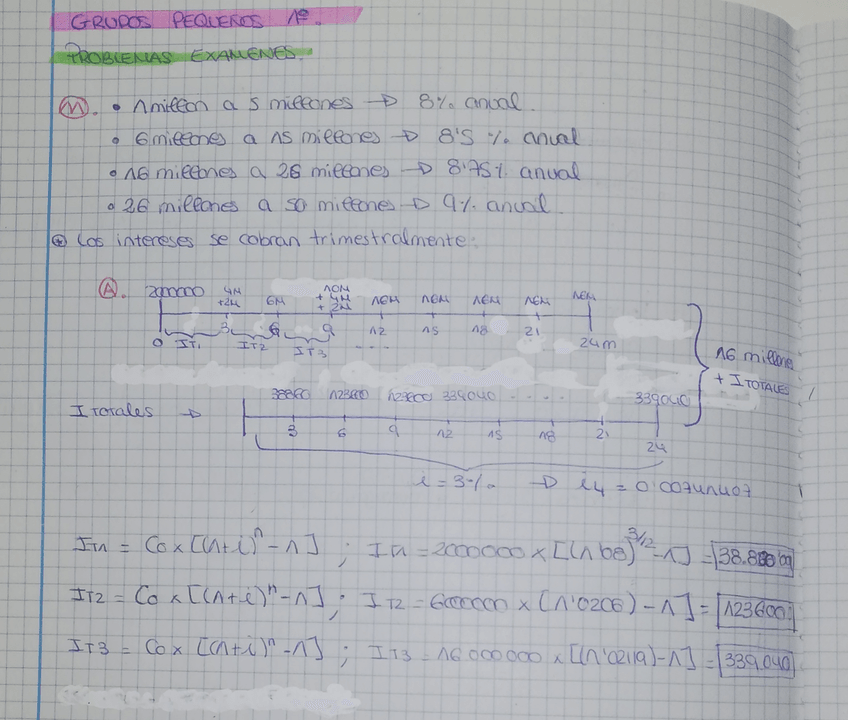 GRUPOS PEQUEÑOS 1º.
PROBLEMAS EXAMENES.
(M). • 1 millon a 5 millones → 8% anual.
• 6 millones a 15 millones → 8'5 % anual
• 16 millones a 26 millones → 8'75% anual
• 26 millones a 50 millones → 9% anual.
⊛ Los intereses se cobran trimestralmente:
(A). 2000000 4M +2M 6M 10M + 4M + 2M 16M 16M 16M 16M 16M
0 3 6 9 12 15 18 21 24m
IT1 IT2 IT3 ...
16 millone + ITOTALES
ITotales → 38860 123600 123600 339040 ..... 339040
3 6 9 12 15 18 21 24
i = 3% → i4 = 0'00741707
IT1 = Co x [(1+i)^n - 1] ; IT1 = 2000000 x [(1'08)^3/12 - 1] =
IT2 = Co x [(1+i)^n - 1] ; IT2 = 6000000 x [1'0206) - 1] = 123600
IT3 = Co x [(1+i)^n - 1] ; IT3 = 16 000000 x [(1'02119) - 1] = 339.040